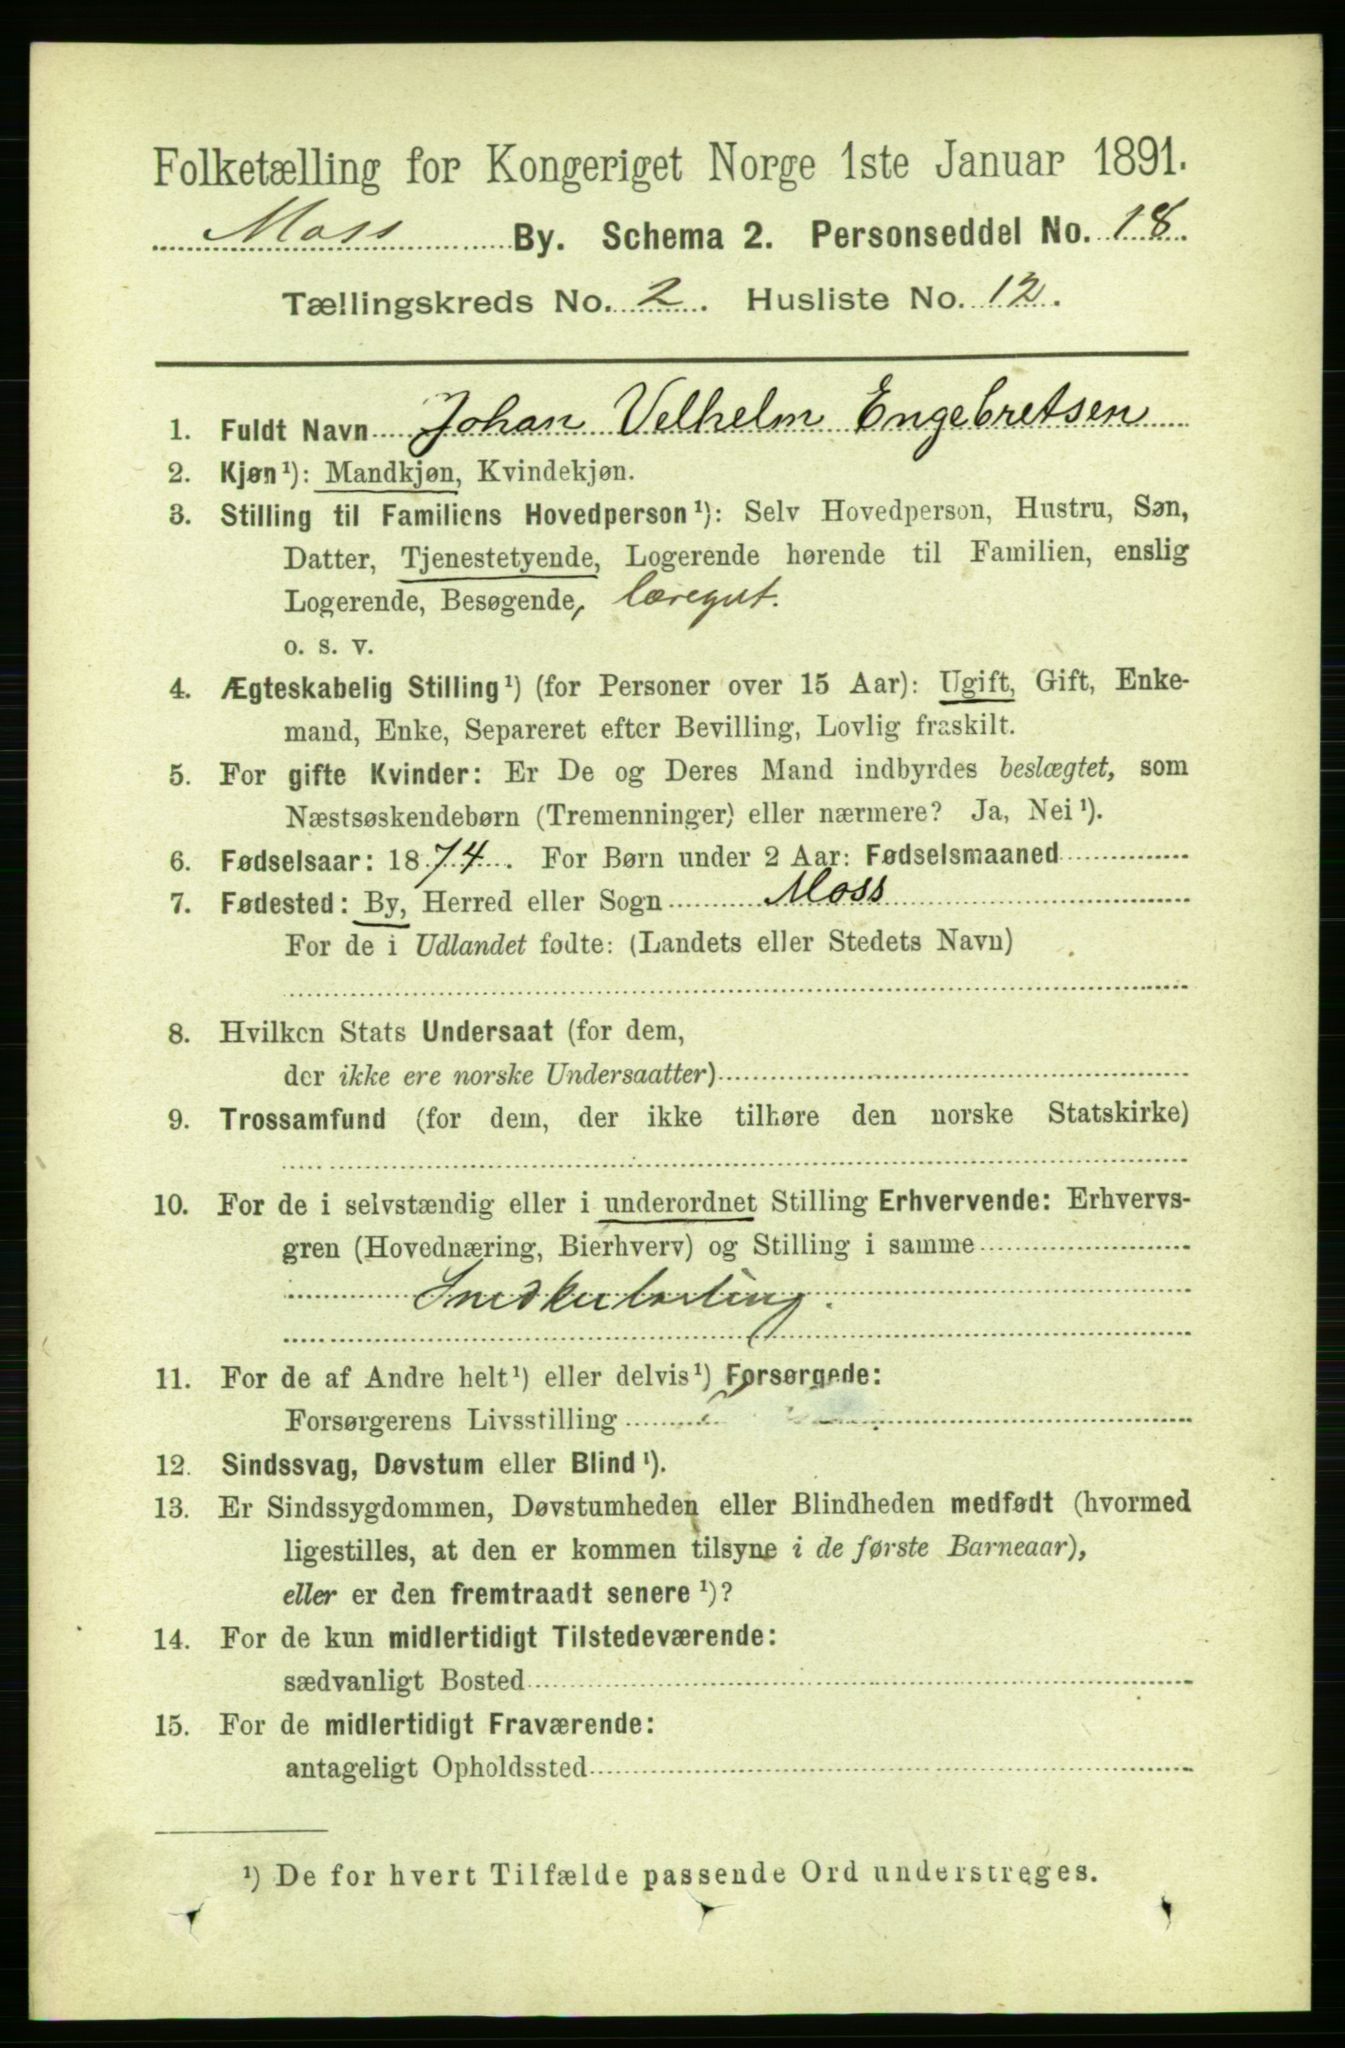 Folketælling for Kongeriget Norge 1ste Januar 1891.
Moss By. Schema 2. Personseddel No. 18.
Tællingskreds No. 2. Husliste No. 12.
1. Fuldt Navn Johan Velhelm Engebretsen
2. Kjøn¹): Mandkjøn, Kvindekjøn.
3. Stilling til Familiens Hovedperson¹): Selv Hovedperson, Hustru, Søn,
Datter, Tjenestetyende, Logerende hørende til Familien, enslig
Logerende, Besøgende, læregut.
o. s. v.
4. Ægteskabelig Stilling¹) (for Personer over 15 Aar): Ugift, Gift, Enke-
mand, Enke, Separeret efter Bevilling, Lovlig fraskilt.
5. For gifte Kvinder: Er De og Deres Mand indbyrdes beslægtet, som
Næstsøskendebørn (Tremenninger) eller nærmere? Ja, Nei¹).
6. Fødselsaar: 1874. For Børn under 2 Aar: Fødselsmaaned
7. Fødested: By, Herred eller Sogn Moss
For de i Udlandet fødte: (Landets eller Stedets Navn)
8. Hvilken Stats Undersaat (for dem,
der ikke ere norske Undersaatter)
9. Trossamfund (for dem, der ikke tilhøre den norske Statskirke)
10. For de i selvstændig eller i underordnet Stilling Erhvervende: Erhvervs-
gren (Hovednæring, Bierhverv) og Stilling i samme
Snedkerlærling.
11. For de af Andre helt¹) eller delvis¹) Forsørgede:
Forsørgerens Livsstilling
12. Sindssvag, Døvstum eller Blind¹).
13. Er Sindssygdommen, Døvstumheden eller Blindheden medfødt (hvormed
ligestilles, at den er kommen tilsyne i de første Barneaar),
eller er den fremtraadt senere¹)?
14. For de kun midlertidigt Tilstedeværende:
sædvanligt Bosted
15. For de midlertidigt Fraværende:
antageligt Opholdssted
¹) De for hvert Tilfælde passende Ord understreges.